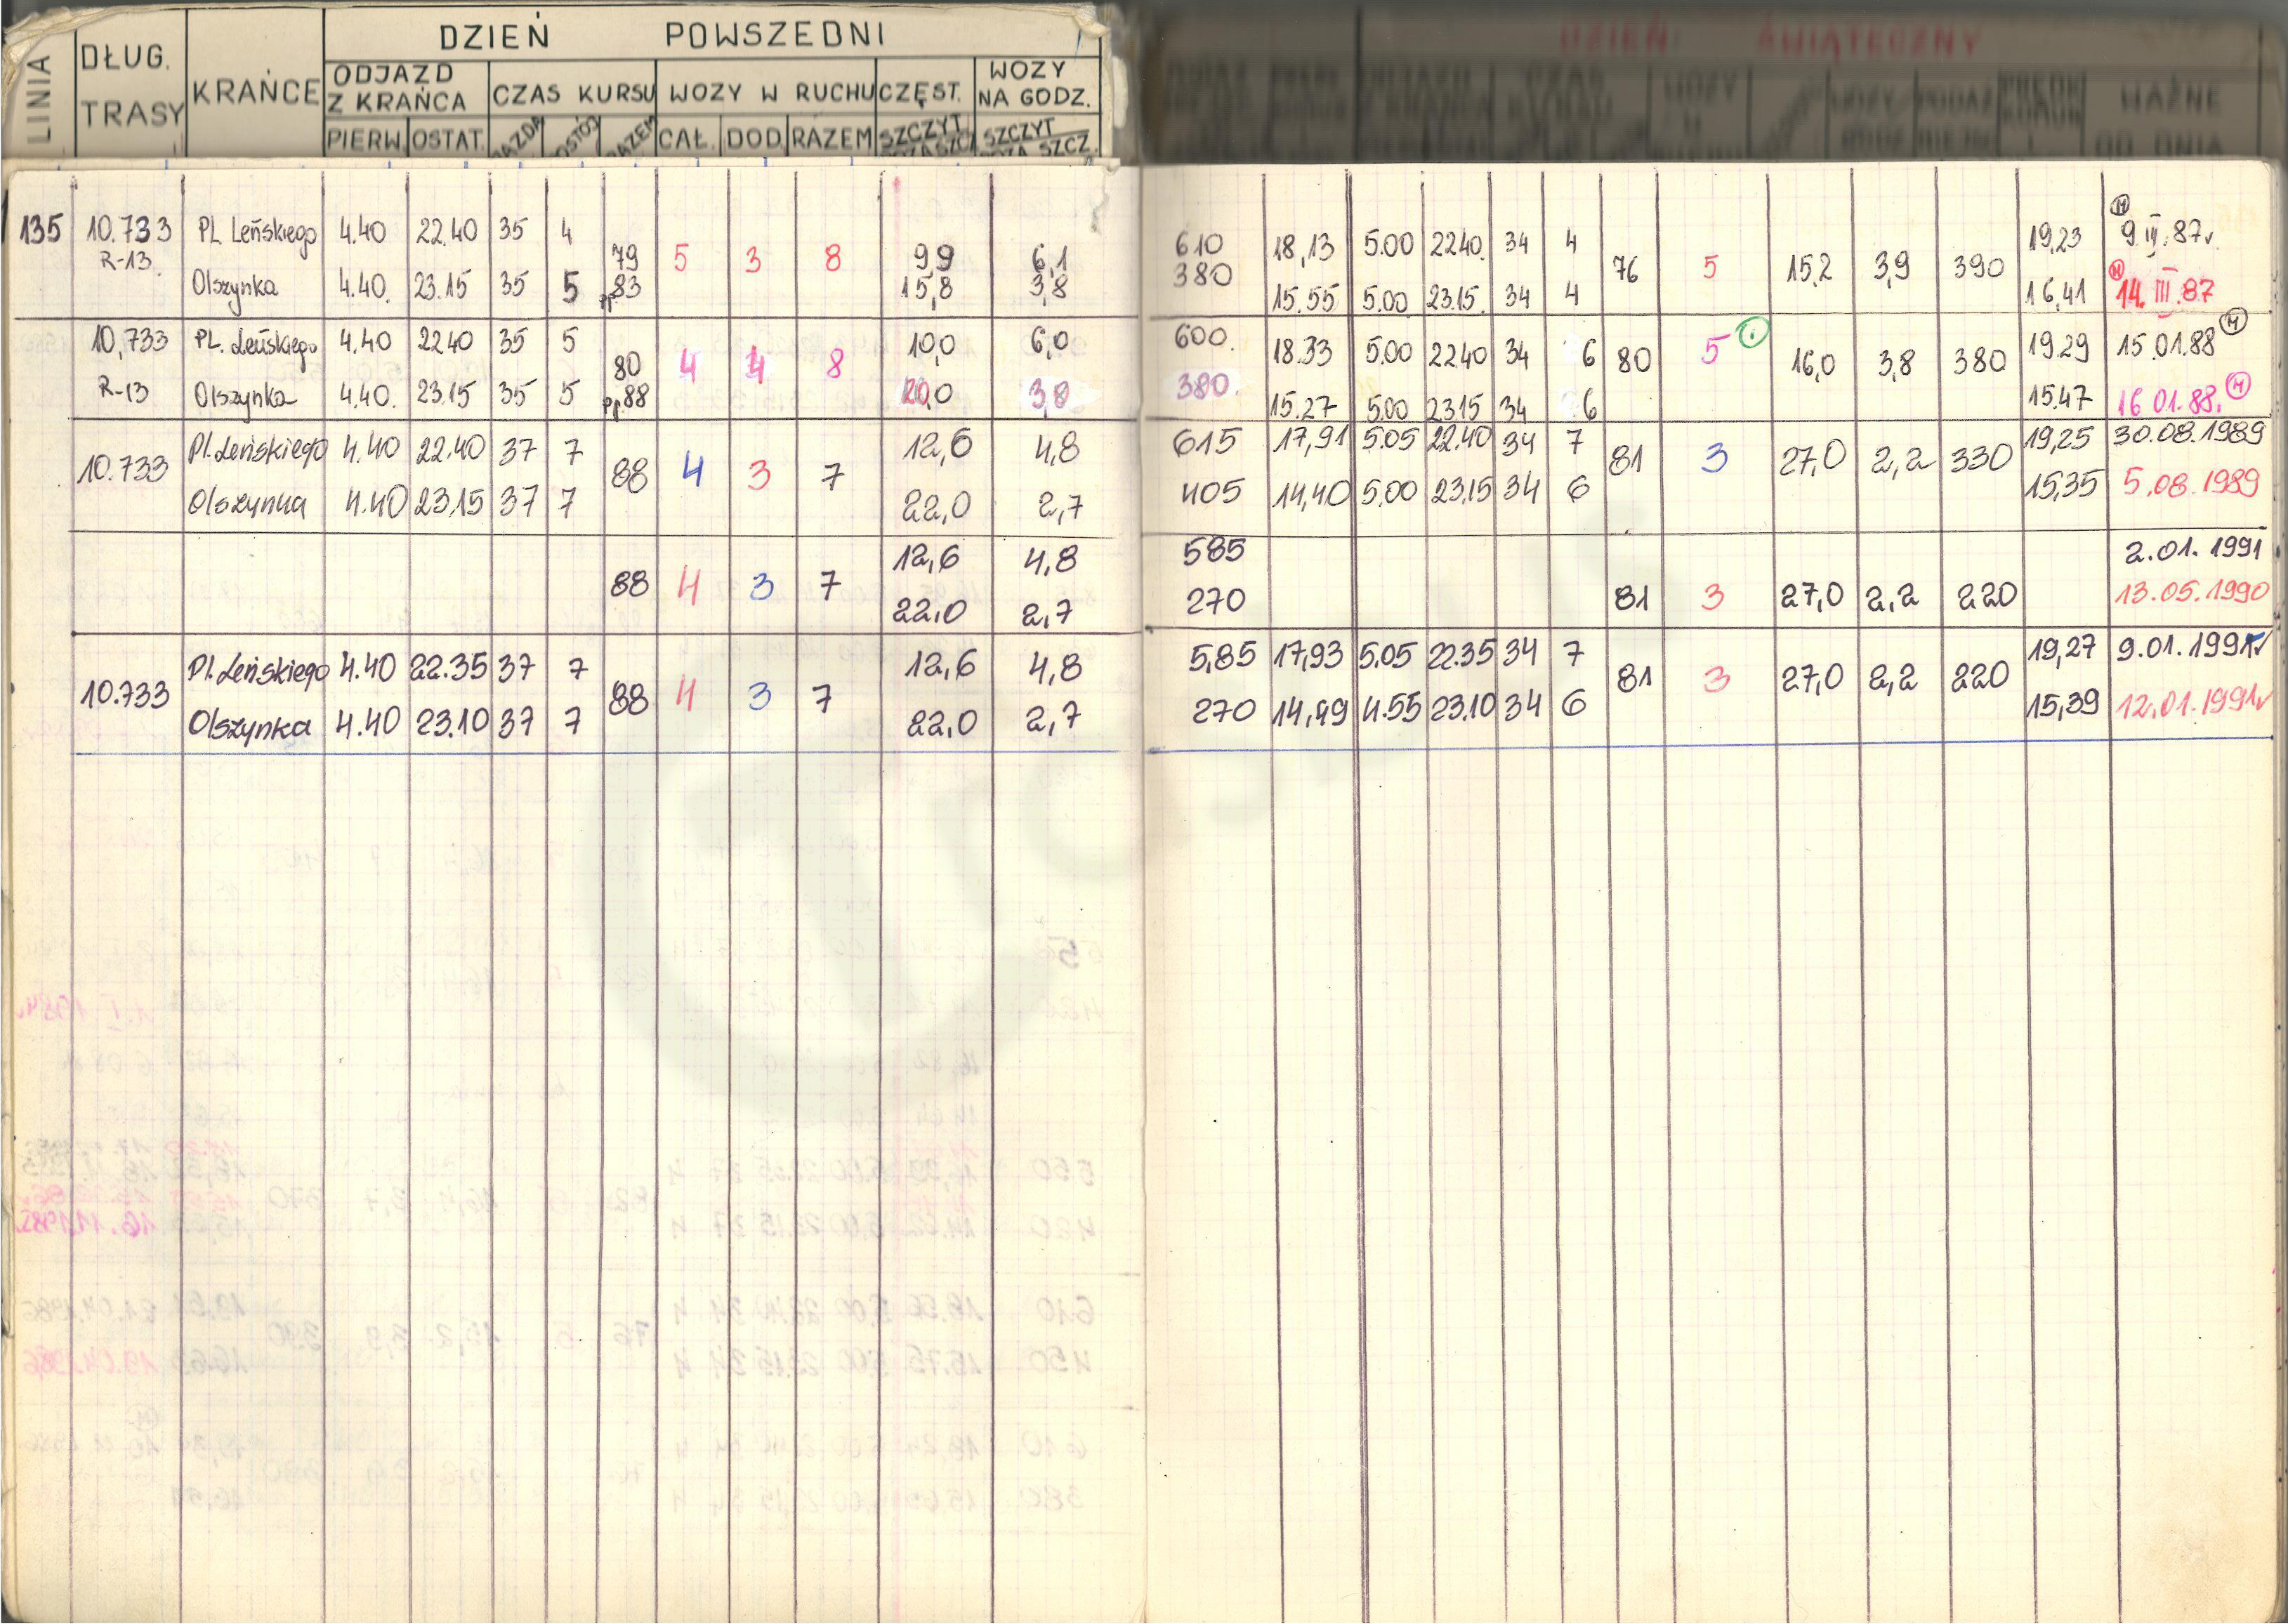 DZIEŃ POWSZEDNI
DZIEŃ ŚWIĄTECZNY
LINIA DŁUG. TRASY KRAŃCE ODJAZD Z KRAŃCA CZAS KURSU WOZY W RUCHU CZĘST. WOZY NA GODZ.
PIERW. OSTAT. CAŁ. DOD. RAZEM SZCZYT SZCZYT
WAŻNE OD DNIA
135 10.733 Pl. Leńskiego 4.40 22.40 35 4 79 5 3 8 9,9 6,1 610 18,13 5.00 22.40 34 4 76 5 15,2 3,9 390 19,23 9.III.87
R-13 Olszynka 4.40. 23.15 35 5 pp.83 15,8 3,8 380 15.55 5.00 23.15 34 4 16,41 14.III.87
10,733 PL. Leńskiego 4.40 22.40 35 5 80 4 4 8 10,0 6,0 600. 18.33 5.00 22.40 34 6 80 5 16,0 3,8 380 19.29 15.01.88
R-13 Olszynka 4.40. 23.15 35 5 pp.88 20,0 3,8 380. 15.27 5.00 23.15 34 6 15.47 16.01.88.
10.733 Pl. Leńskiego 4.40 22.40 37 7 88 4 3 7 12,6 4,8 615 17,91 5.05 22.40 34 7 81 3 27,0 2,2 330 19,25 30.08.1989
Olszynka 4.40 23.15 37 7 22,0 2,7 405 14,40 5.00 23.15 34 6 15,35 5.08.1989
88 4 3 7 12,6 4,8 585 81 3 27,0 2,2 220 2.01.1991
22,0 2,7 270 13.05.1990
10.733 Pl. Leńskiego 4.40 22.35 37 7 88 4 3 7 12,6 4,8 5,85 17,93 5.05 22.35 34 7 81 3 27,0 2,2 220 19,27 9.01.1991
Olszynka 4.40 23.10 37 7 22,0 2,7 270 14,49 4.55 23.10 34 6 15,39 12.01.1991